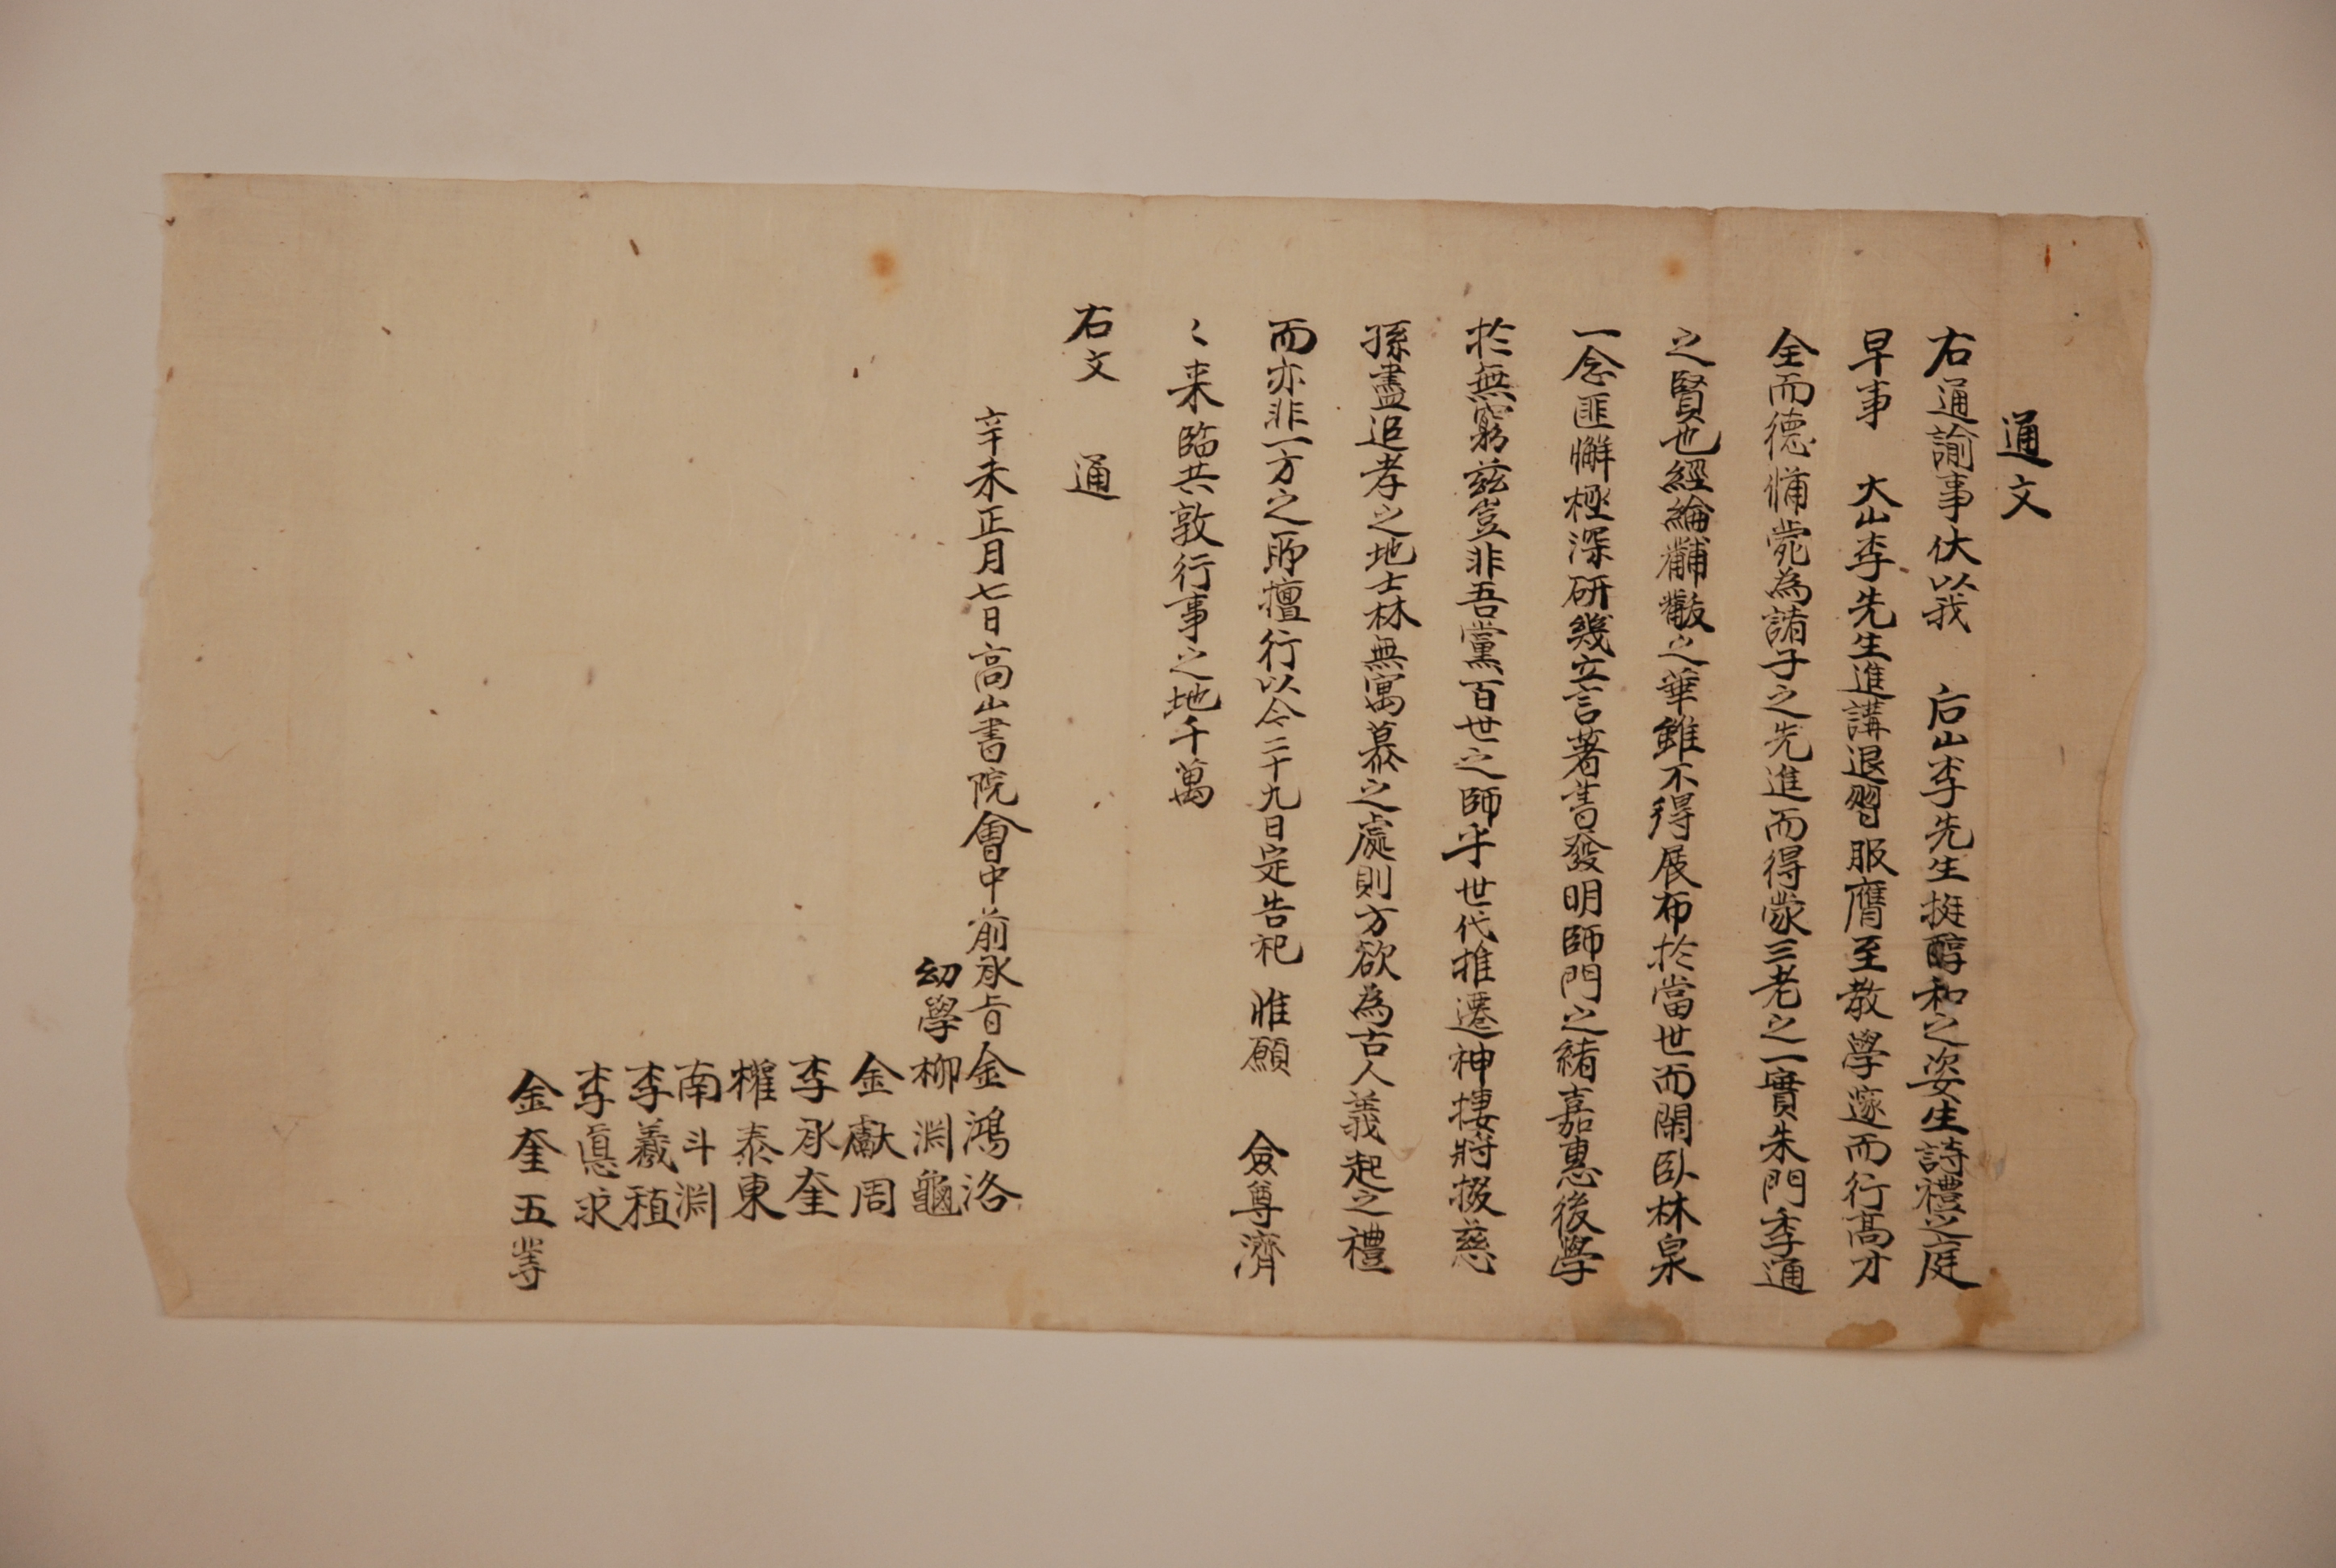 通文
右通諭事伏以我 后山李先生挺醇和之姿生詩禮之庭
早事 大山李先生進講退習服膺至教學邃而行高才
全而德備蔚為諸子之先進而得蒙三老之一實朱門季通
之賢也經綸黼黻之華雖不得展布於當世而閑臥林泉
一念匪懈極深研幾立言著書發明師門之緖嘉惠後學
於無窮玆豈非吾黨百世之師乎世代推遷神棲將掇慈
孫盡追孝之地士林無寓慕之處則方欲為古人義起之禮
而亦非一方之所擅行以今二十九日定告祀 惟願 僉尊濟
〻来臨共敦行事之地千萬
右文 通
辛未正月七日高山書院會中前承旨金鴻洛
幼學柳淵龜
金獻周
李承奎
權泰東
南斗淵
李羲稙
李慤求
金奎五等